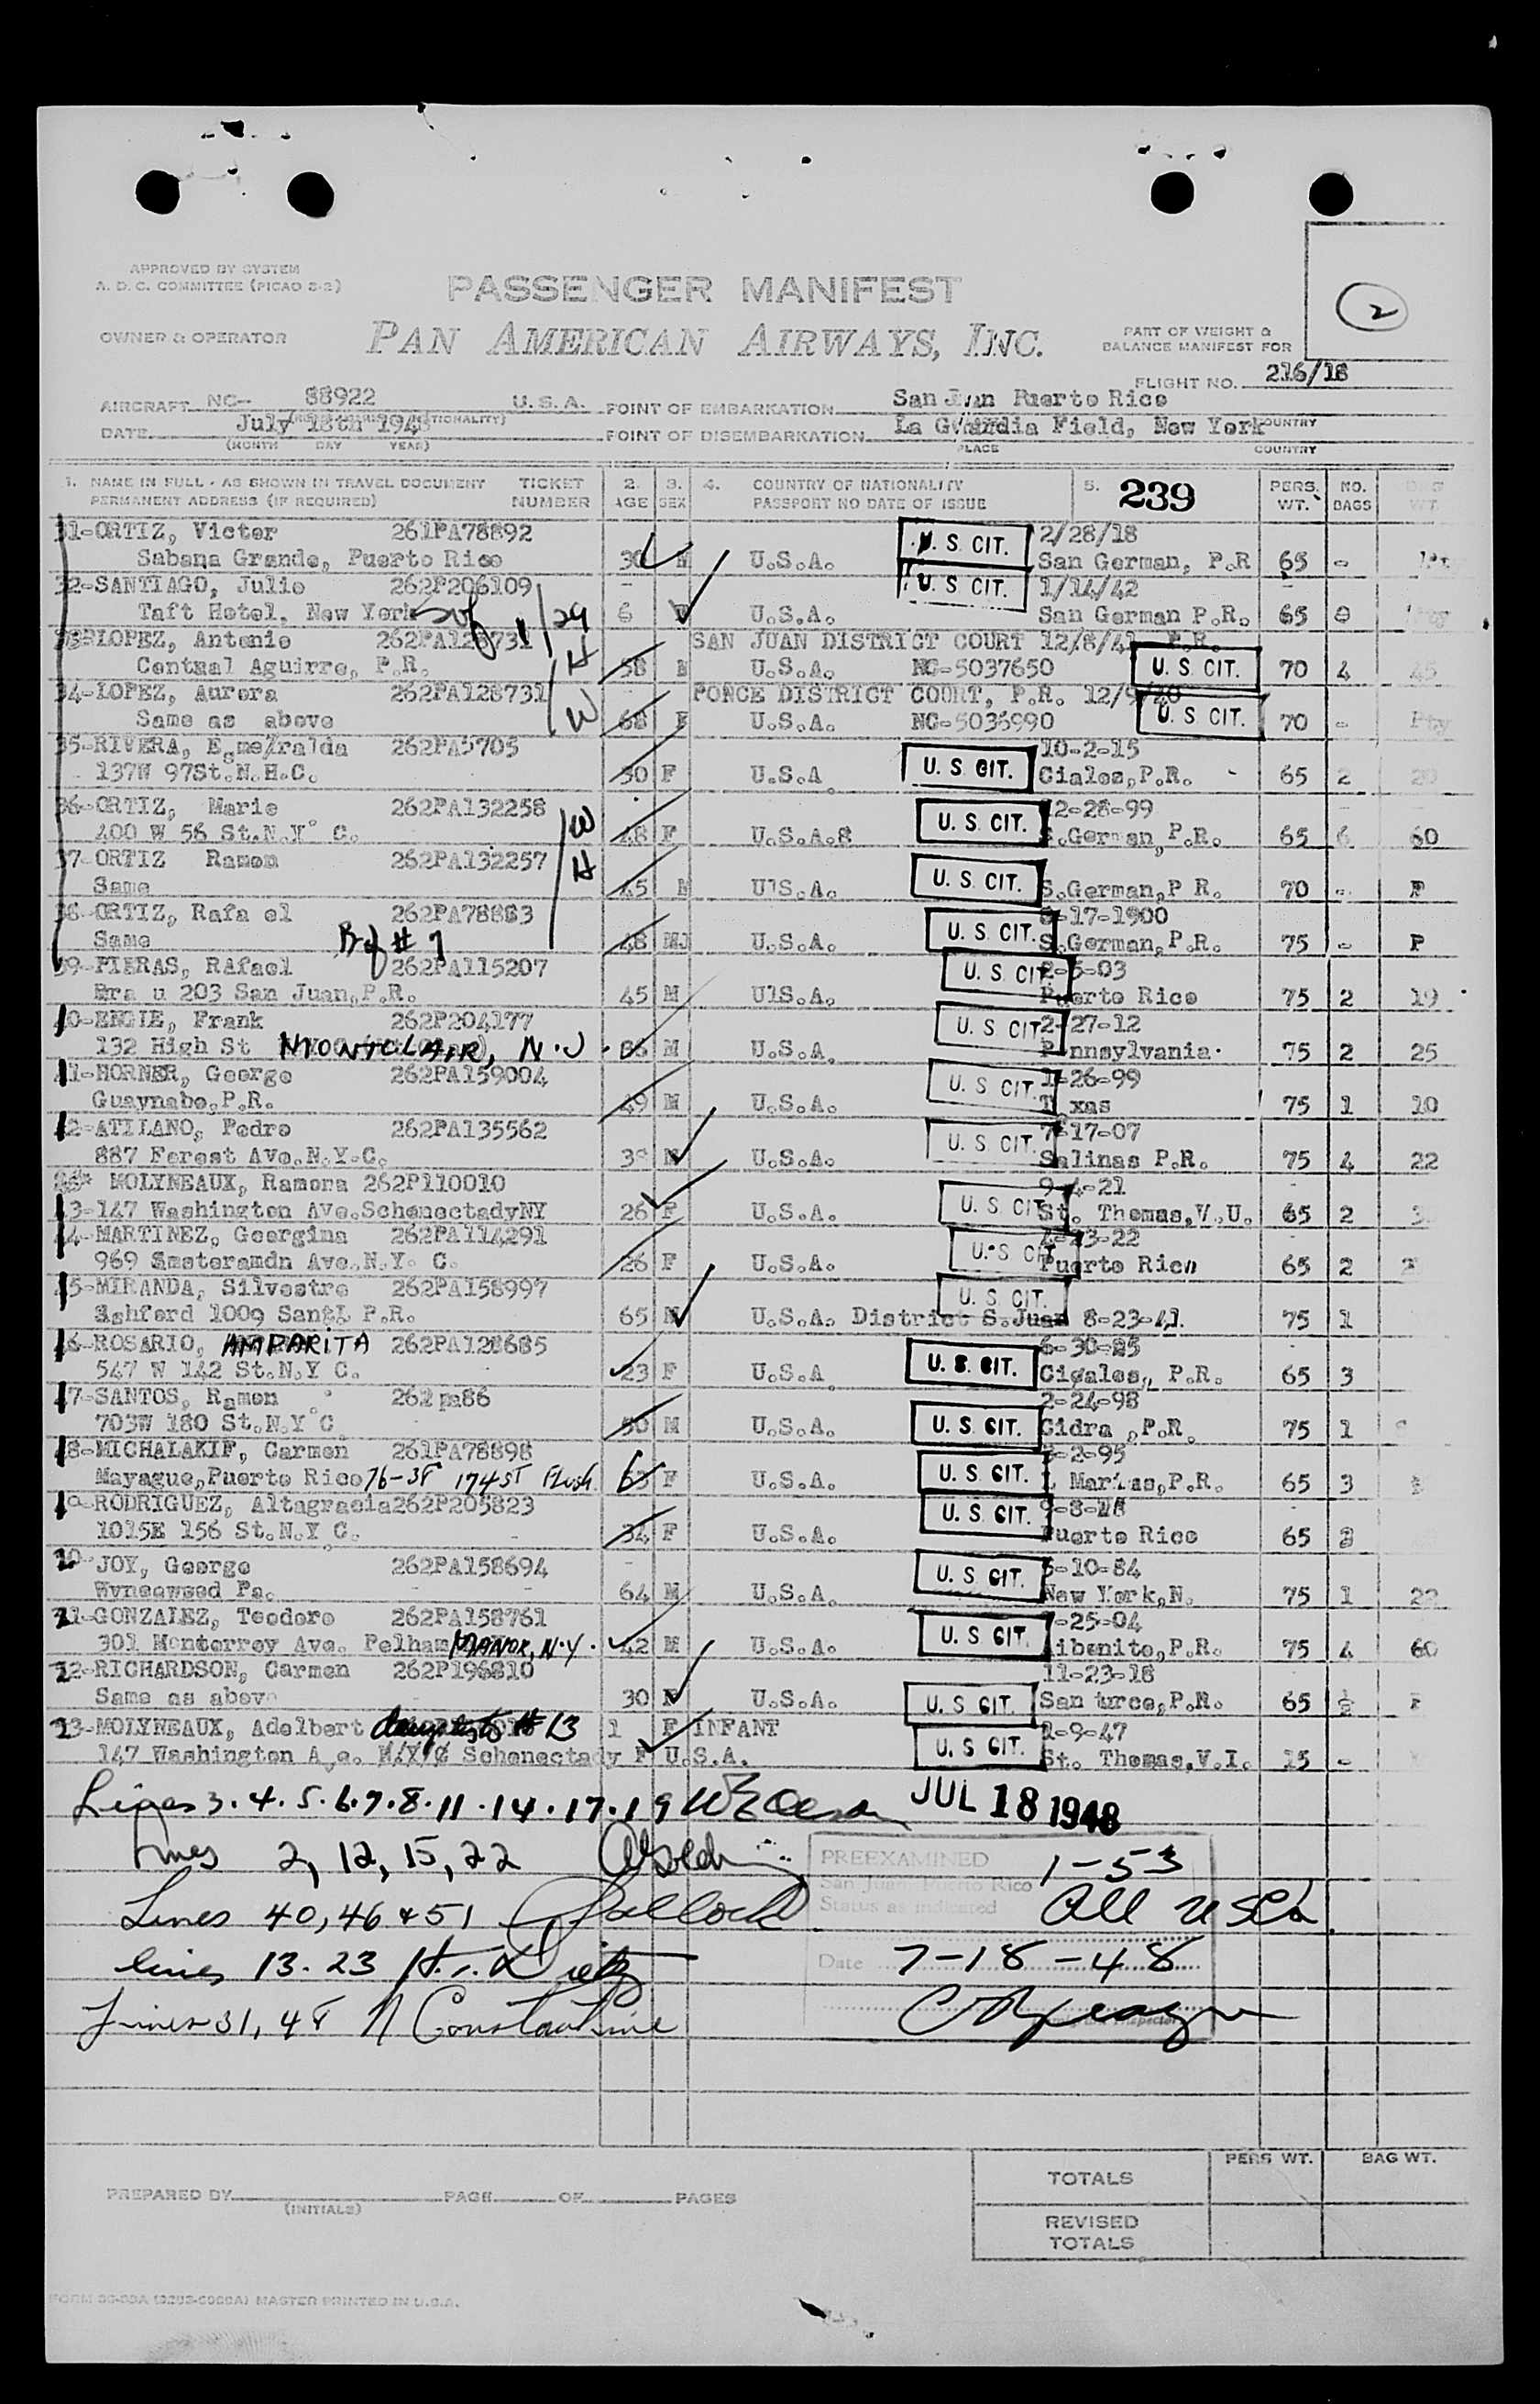 2
APPROVED BY SYSTEM
A. D. C. COMMITTEE (PICAO 8-2)
PASSENGER MANIFEST
OWNER & OPERATOR
PAN AMERICAN AIRWAYS, INC.
PART OF WEIGHT &
BALANCE MANIFEST FOR
FLIGHT NO. 216/18
AIRCRAFT NC- 88922 U.S.A. POINT OF EMBARKATION San Juan Puerto Rico
DATE July 18th 1948 POINT OF DISEMBARKATION La Guardia Field, New York COUNTRY
(MONTH DAY YEAR) PLACE COUNTRY
1. NAME IN FULL - AS SHOWN IN TRAVEL DOCUMENT TICKET 2. 3. 4. COUNTRY OF NATIONALITY 5. 239 PERS. NO. BAG
PERMANENT ADDRESS (IF REQUIRED) NUMBER AGE SEX PASSPORT NO DATE OF ISSUE WT. BAGS WT.
31-ORTIZ, Victor 261PA78892 U. S. CIT. 2/28/18
Sabana Grande, Puerto Rico 30 M U.S.A. San German, P.R 65 -
32-SANTIAGO, Julio 262P206109 U. S CIT. 1/14/42
Taft Hotel, New York 6 U.S.A. San German P.R. 65 0
LOPEZ, Antonio 262PA128731 SAN JUAN DISTRICT COURT 12/8/41 P.R.
Central Aguirre, P.R. H 58 M U.S.A. NC-5037650 U. S CIT. 70 4 45
34-LOPEZ, Aurora 262PA128731 PONCE DISTRICT COURT, P.R. 12/9/40
Same as above W 68 F U.S.A. NC-5036990 U. S CIT. 70 - Pty
35-RIVERA, Esmeralda 262PA5705 10-2-15
137W 97St.N.H.C. 30 F U.S.A U. S CIT. Ciales,P.R. - 65 2 20
36-ORTIZ, Marie 262PA132258 12-28-99
400 W 56 St.N.Y C. W 48 F U.S.A.8 U. S CIT. S.German,P.R. 65 6 60
37-ORTIZ Ramon 262PA132257 H
Same 45 M U1S.A. U. S CIT. S.German,P R. 70 - P
38-ORTIZ, Rafa el 262PA78883 8-17-1900
Same # 7 48 MJ U.S.A. U. S CIT. S.German,P.R. 75 - P
39-PIERAS, RAfael 262PA115207 2-6-03
203 San Juan,P.R. 45 M U1S.A. U. S CIT Puerto Rico 75 2 19
40-ENGIE, Frank 262P204177 2-27-12
132 High St MONTCLAIR, N.J. 36 M U.S.A. U. S CIT Pennsylvania. 75 2 25
41-HORNER, George 262PA159004 1-26-99
Guaynabo,P.R. 49 M U.S.A. U. S CIT. T xas 75 1 10
42-ATILANO, Pedro 262PA135562 7-17-07
887 Forest Ave.N.Y.C. M U.S.A. U. S CIT. Salinas P.R. 75 4 22
MOLYNEAUX, Ramora 262P110010 9-4-21
43-147 Washington Ave.SchenectadyNY 26 F U.S.A. U. S CIT St. Thomas,V.U. 65 2
44-MARTINEZ, Georgina 262PA114291 4-23-22
969 Amsteramdn Ave.N.Y. C. 26 F U.S.A. U. S CIT Puerto Rico 65 2
45-MIRANDA, Silvestre 262PA158997 U. S CIT.
Ashford 1009 Sant P.R. 65 M U.S.A. District S.Juan 8-23-41 75 1
46-ROSARIO, AMPARITA 262PA128685 6-30-25
547 W 142 St.N.Y C. 23 F U.S.A U. S. CIT. Ciales, P.R. 65 3
47-SANTOS, Ramon 262pa86 2-24-98
703W 180 St.N.Y C 50 M U.S.A. U. S. CIT. Cidra ,P.R. 75 1
48-MICHALAKIF, Carmen 261PA78898 -2-95
Mayague,Puerto Rico 76-38 174 ST Flush 53 F U.S.A. U. S. CIT. L Marias,P.R. 65 3
49-RODRIGUEZ, Altagracia262P205823 9-8-18
1015E 156 St.N.Y C. 34 F U.S.A. U. S. CIT. Puerto Rico 65 2
JOY, George 262PA158694 -10-84
Wyneeweed Pa. 64 M U.S.A. U. S CIT. New York,N. 75 1 22
GONZALEZ, Teodoro 262PA158761 -25-04
301 Monterrey Ave. Pelham MANOR, N.Y. 42 M U.S.A. U. S CIT. Aibonito,P.R. 75 4 60
RICHARDSON, Carmen 262P196810 11-23-18
Same as above 30 F U.S.A. U. S CIT. San turce,P.R. 65
MOLYNEAUX, Adelbert daughter to #13 1 F INFANT 2-9-47
147 Washington A e. Schenectady F U.S.A. U. S CIT. St. Thomas,V.I. 15 -
Lines 3.4.5.6.7.8.11.14.17.19 JUL 18 1948
lines 2, 12, 15, 22
PREEXAMINED 1-53
San Juan Puerto Rico
Lines 40, 46 & 51 Status as indicated All USCs
lines 13. 23 Date 7-18-48
Lines 31, 48 N Constantine
Inspector
TOTALS PERS WT. BAG WT.
PREPARED BY PAGE OF PAGES
(INITIALS)
REVISED
TOTALS
MASTER PRINTED IN U.S.A.